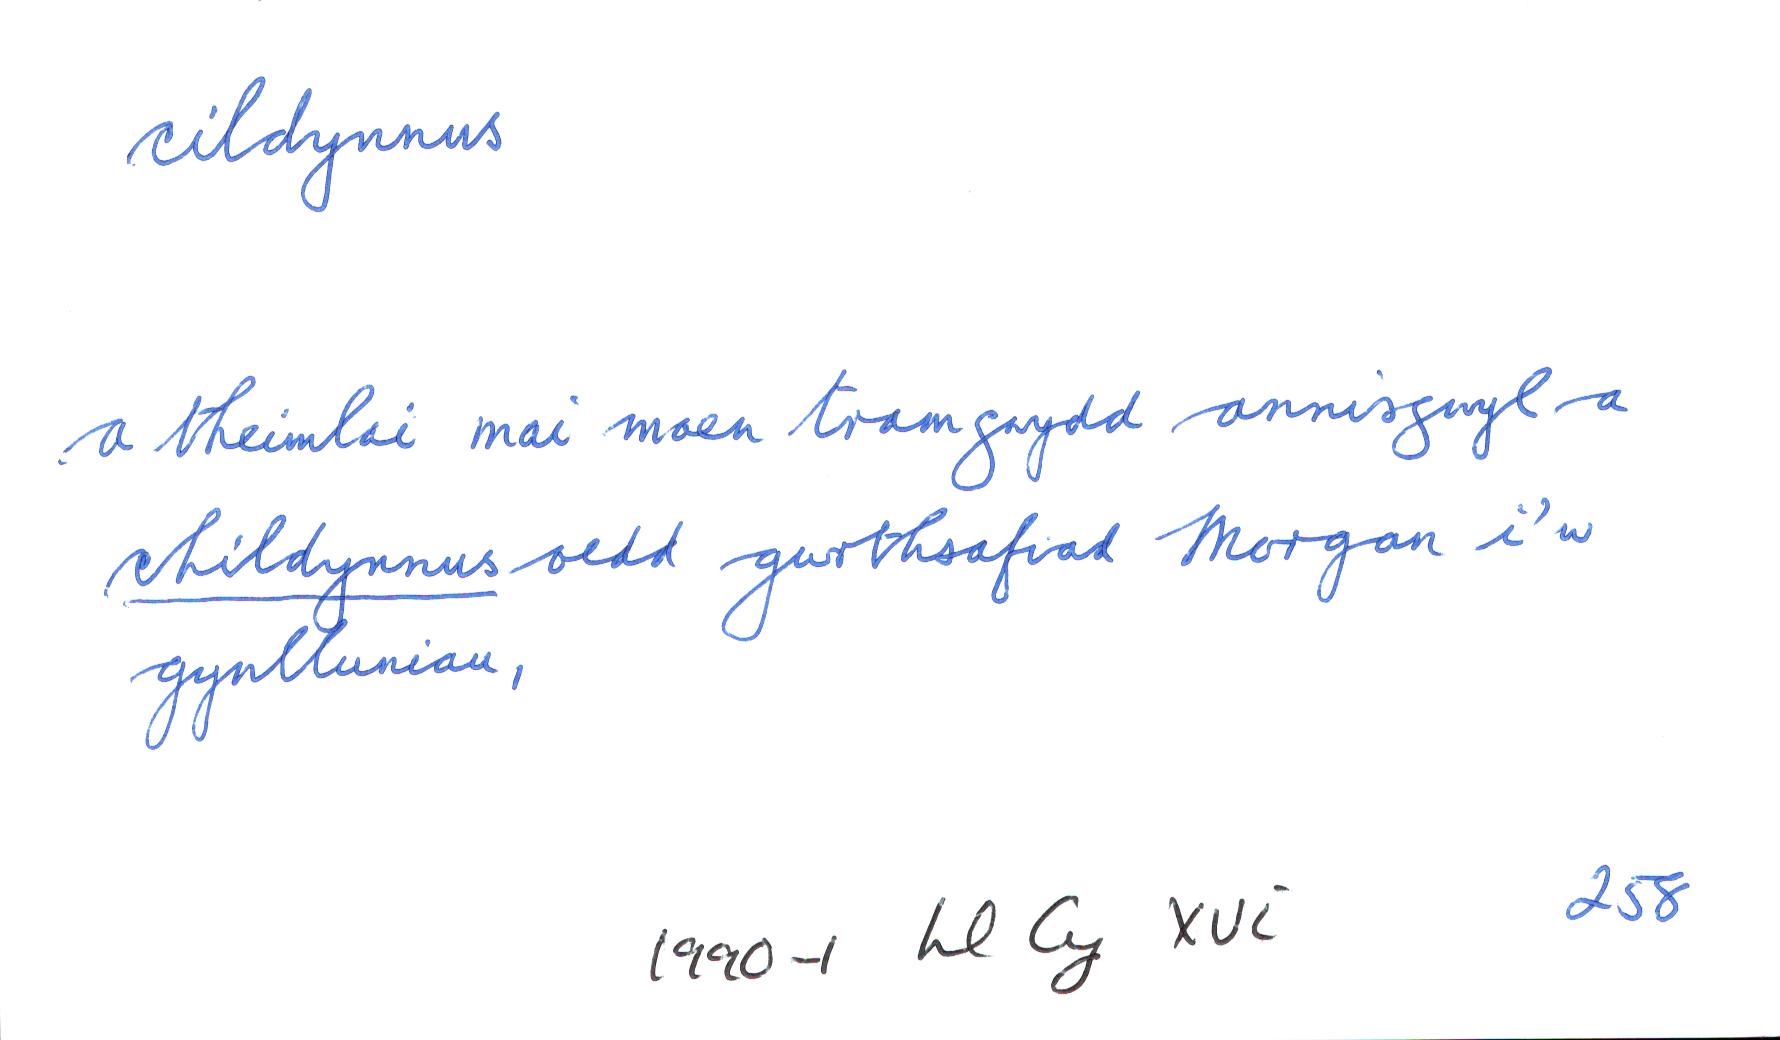 cildynnus
a theimlai mai maen tramgwydd annisgwyl a
childynnus oedd gwrthsafiad Morgan i'w
gynlluniau,
258
1990-1 Ll Cy XVI